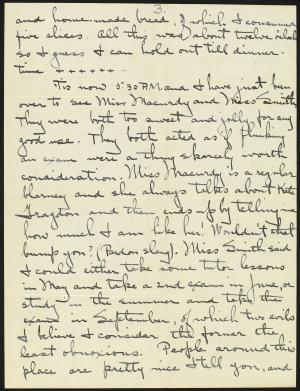 3.
and home-made bread, of which I consumed
five slices. All this was about twelve o'clock
so I guess I can hold out till dinner-
time + + + + + +
'Tis now 5:30 P.M. and I have just been
over to see Miss Macurdy and Miss Smith.
They were both too sweet and jolly for any
good use. They both acted as if flunking
an exam were a thing scarcely worth
consideration. Miss Macurdy is a regular
blarney and she always talks about Kate
and then ends up by telling me
how much I am like her! Wouldn't that
bump you? (Pardon slang). Miss Smith said
I could either take some tutor lessons
in May and take a 2nd exam in June, or
study in the summer and take the
exam in September, of which two evils
I believe I consider the former the
least obnoxious. People around this
place are pretty nice I tell you, and